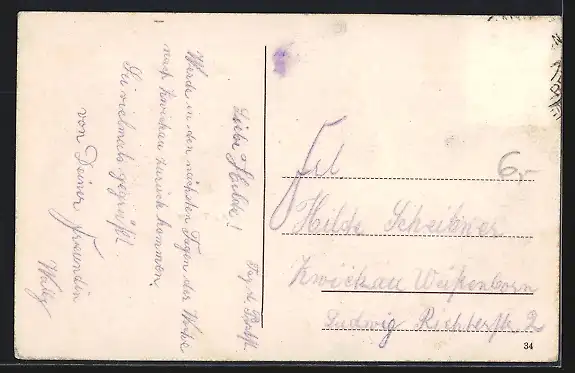 Liebe Hilde!
Werde in den nächsten Tagen der Woche
nach Zwickau zurück kommen.
Sei vielmals gegrüßt
von Deiner Freundin
Frl
6,-
Hilde Scheibner
Zwickau Weißenborn
Ludwig Richterstr. 2
34